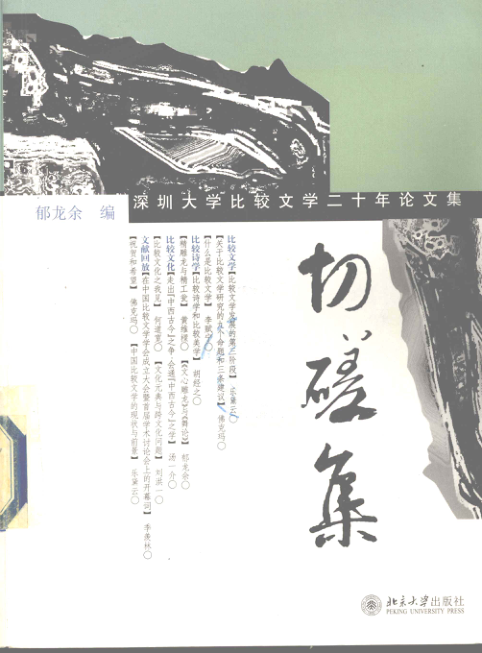 深圳大学比较文学二十年论文集
郁龙余 编
切磋集
比较文学【比较文学发展的第三阶段】 乐黛云〇
【关于比较文学研究的九个命题和三条建议】 佛克玛〇
【什么是比较文学】 李赋宁〇
比较诗学【比较诗学和比较美学】 胡经之〇
【精雕龙与精工瓮】 黄维樑〇 【《文心雕龙》与《舞论》】 郁龙余〇
比较文化【走出「中西古今」之争,会通「中西古今」之学】 汤一介〇
【比较文化之我见】 何道宽〇 【文化元典与跨文化问题】 刘洪一〇
文献回放【在中国比较文学学会成立大会暨首届学术讨论会上的开幕词】 季羡林〇
【祝贺和希望】 佛克玛〇 【中国比较文学的现状与前景】 乐黛云〇
北京大学出版社
PEKING UNIVERSITY PRESS